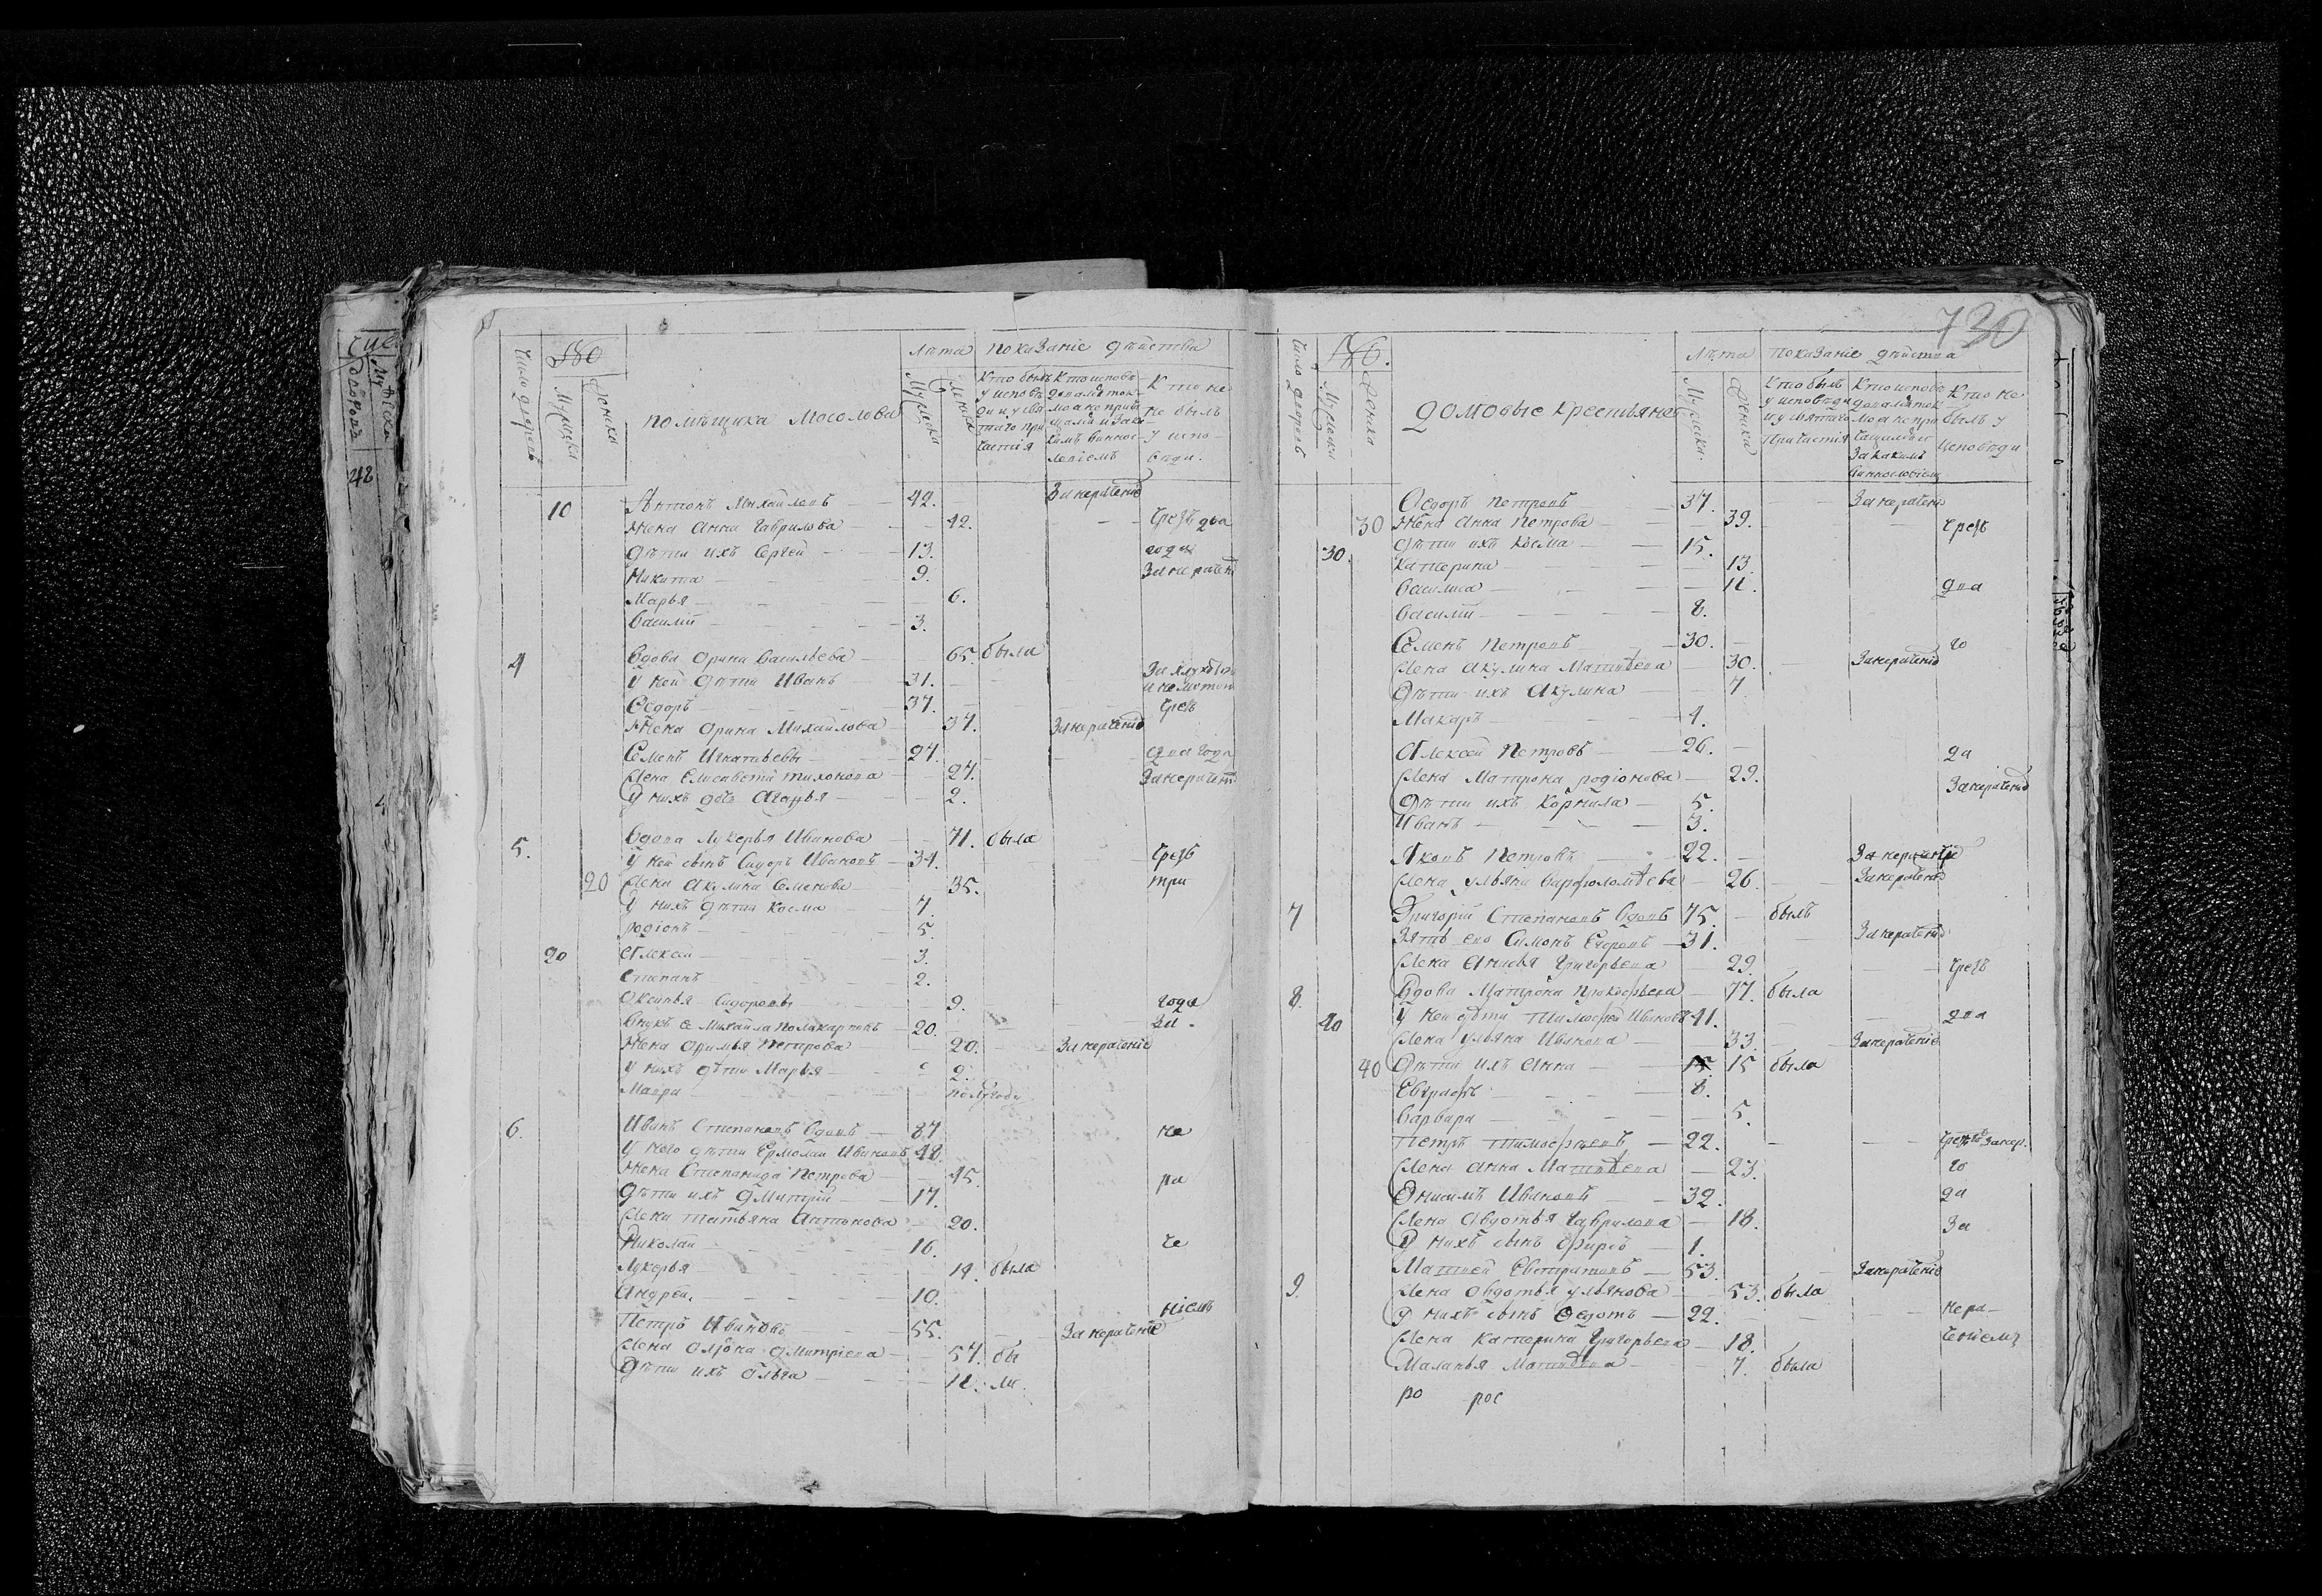 730
Число дворовъ
Мужеска
Женска
помѣщика Мосолова
Лѣта
показаніе дѣйства
Мужеска
Женска
Кто былъ у исповѣди и у святаго причастія
Кто не былъ у исповѣди
10 Антонъ Михайловъ 42. За нераченіе
Жена Анна Гаврилова 42. Чрезъ два
Дѣти ихъ Сергей 13. года
Никита 9. За нерачені
Марья 6.
Василій 3.
4 Вдова Орина Васильева 65. была
У ней дѣти Иванъ 31.
Ѳедоръ 37. Чрезъ
Жена Орина Михайлова 37. За нераченіе
Семенъ Игнатьевы 27. два года
Жена Елисавета Тихонова 27. За нерачені
У нихъ дочь Агафья 2.
5. Вдова Лукерья Иванова 71. была
У ней сынъ Сидоръ Ивановъ 34. Чрезъ
20 Жена Акулина Семенова 35. три
У нихъ дѣти Косма 7
Родіонъ 5.
20 Алексей 3.
Степанъ 2.
Оксинья Сидоровы 9. года
Внукъ ея Михайла Поликарповъ 20. За
Жена Офимья Петрова 20. За нераченіе
У нихъ дѣти Марья 2.
Мавра полугоду
6. Иванъ Степановъ Вдовъ 87 не
У него дѣти Ермолай Ивановъ 48.
Жена Степанида Петрова 45. ра
Дѣти ихъ Дмитрій 17.
Жена Татьяна Антонова 20.
Николай 16. че
Лукерья 14. была
Андрей 10. ніемъ
Петръ Ивановъ 55. За нераченіе
Жена Ѳлёна Дмитріева 57. бы
Дѣти ихъ Ольга 11. ли
Число дворовъ
Мужеска
Женска
Домовые крестьяне
Лѣта
показаніе дѣйства
Мужеска
Женска
Кто былъ у исповѣди и у святаго Причастія
Кто исповѣдовался токмо а не причащался и за какимъ виннословіемъ
Кто не былъ у исповѣди
Ѳедоръ Петровъ 37. За нерачені
30 Жена Анна Петрова 39. Чрезъ
30. Дѣти ихъ Косма 15.
Катерина 13.
Василиса 11. два
Василій 8.
Семенъ Петровъ 30. го
Жена Акулина Матвѣева 30. За нераченіе
Дѣти ихъ Акулина 7
Макаръ 4.
Алексей Петровъ 26. да
Жена Матрона Родіонова 29. За нераченіе
Дѣти ихъ Корнила 5.
Иванъ 3.
Яковъ Петровъ 22. За нераченіе
Жена Ульяна Варфоломѣева 26. За нераченіе
7 Григорій Степановъ Вдовъ 75. былъ
Зять его Симонъ Егоровъ 31. За нераченіе
Жена Анисья Григорьева 29. Чрезъ
8. Вдова Матрона Прокофьева 77. была
40 У ней дѣти Тимофей Ивановъ 41. два
Жена Ульяна Иванова 33. За нераченіе
40 Дѣти ихъ Анна 15 была
Евграфъ 8.
Варвара 5.
Петръ Тимофѣевъ 22.
Жена Анна Матвѣева 23. го
Онисимъ Ивановъ 32. да
Жена Авдотья Гаврилова 18. За
У нихъ сынъ Фирсъ 1.
9. Матвей Евстратовъ 53. За нераченіе
Жена Овдотья Ульянова 53. была
У нихъ сынъ Ѳедотъ 22. нера-
Жена Катерина Григорьева 18. ченіемъ
Маланья Матвѣева 7. была
ро рос